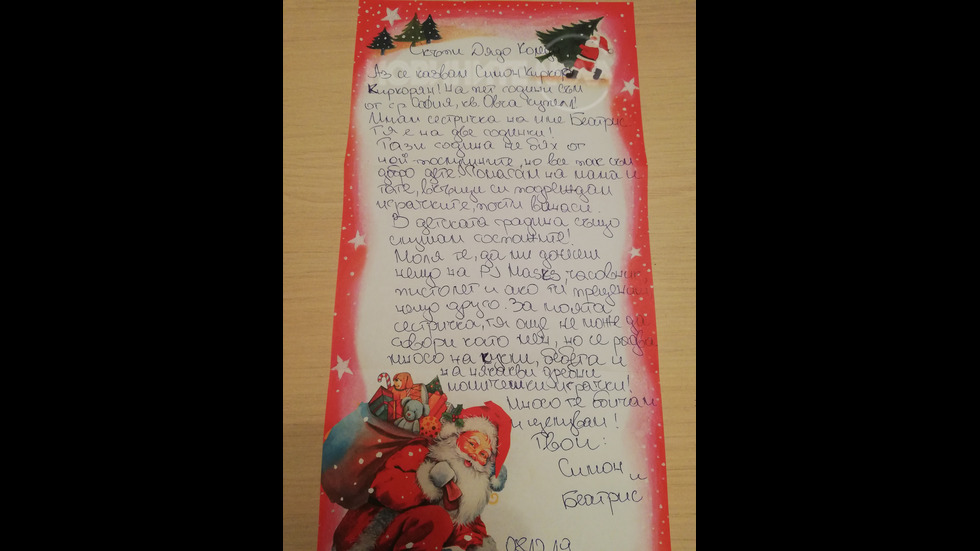 Скъпи Дядо Коледа
Аз се казвам Симон Киркор
Киркорян! На пет години съм
от гр. София, кв. Овча купел!
Имам сестричка на име Беатрис
Тя е на две годинки!
Тази година не бях от
най-послушните, но все пак съм
добро дете. Помагам на мама и
тате, вкъщи си подреждам
играчките, почти винаги.
В детската градина също
слушам госпожите!
Моля те, да ми донесеш
нещо на PJ Masks, часовник,
пистолет и ако ти прецениш
нещо друго. За моята
сестричка, тя още не може да
говори като мен, но се радва
много на кукли, бебета и
на някакви дребни
момичешки играчки!
Много те обичам
и целувам!
Твои:
Симон и
Беатрис
08.12.19